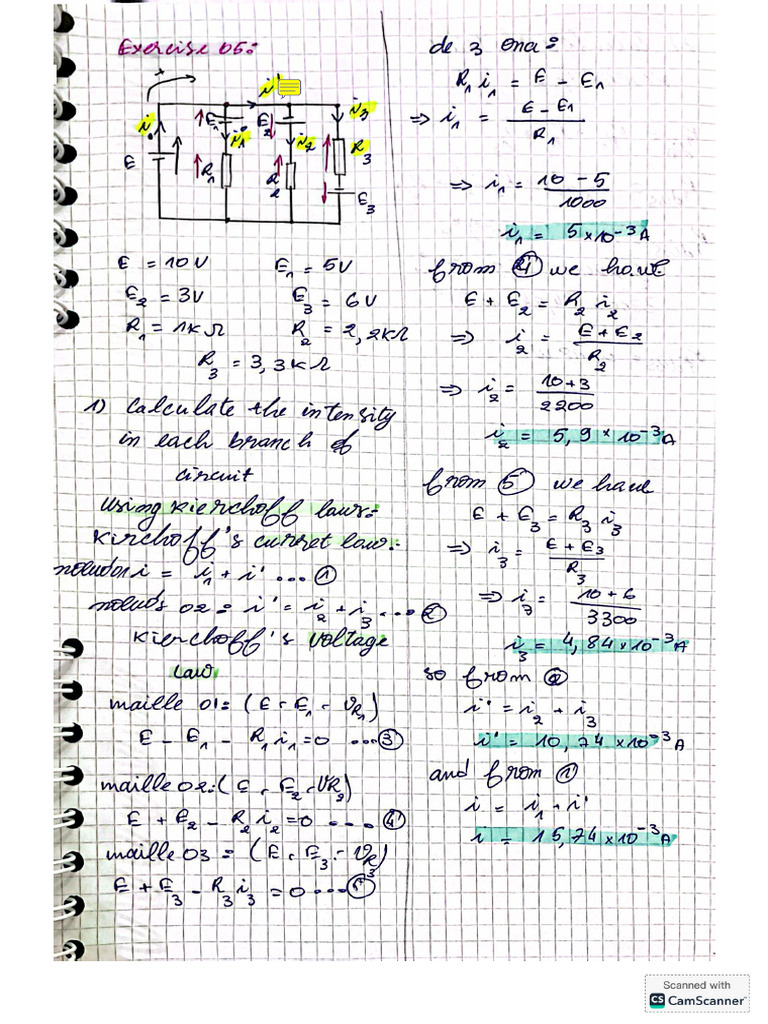 Exercise 05:
+
i'
i
E
E₁
i₁
R₁
E₂
i₂
R
2
i₃
R
3
E₃
E = 10V E₁ = 5V
E₂ = 3V E₃ = 6V
R₁ = 1KΩ R₂ = 2,2KΩ
R₃ = 3,3KΩ
1) Calculate the intensity
in each branch of
circuit
using Kierchoff laws:
Kirchoff's curret law:
i = i₁ + i' ... ①
02: i' = i₂ + i₃ ... ②
Kierchoff's voltage
law
maille 01: (E - E₁ - VR₁)
E - E₁ - R₁i₁ = 0 ... ③
maille 02: (E, E₂, VR₂)
E + E₂ - R₂i₂ = 0 .... ④
maille 03 = (E, E₃, VR₃)
E + E₃ - R₃i₃ = 0 ... ⑤
de 3 Ona:
R₁i₁ = E - E₁
⇒ i₁ = E - E₁ / R₁
⇒ i₁ = 10 - 5 / 1000
i₁ = 5×10⁻³A
from ④ we have
E + E₂ = R₂ i₂
⇒ i₂ = E + E₂ / R₂
⇒ i₂ = 10+3 / 2200
i₂ = 5,9 × 10⁻³A
from ⑤ we have
E + E₃ = R₃ i₃
⇒ i₃ = E + E₃ / R₃
⇒ i₃ = 10 + 6 / 3300
i₃ = 4,84×10⁻³A
so from ②
i' = i₂ + i₃
i' = 10,74 ×10⁻³A
and from ①
i = i₁ + i'
i = 15,74 ×10⁻³A
Scanned with
CS CamScanner